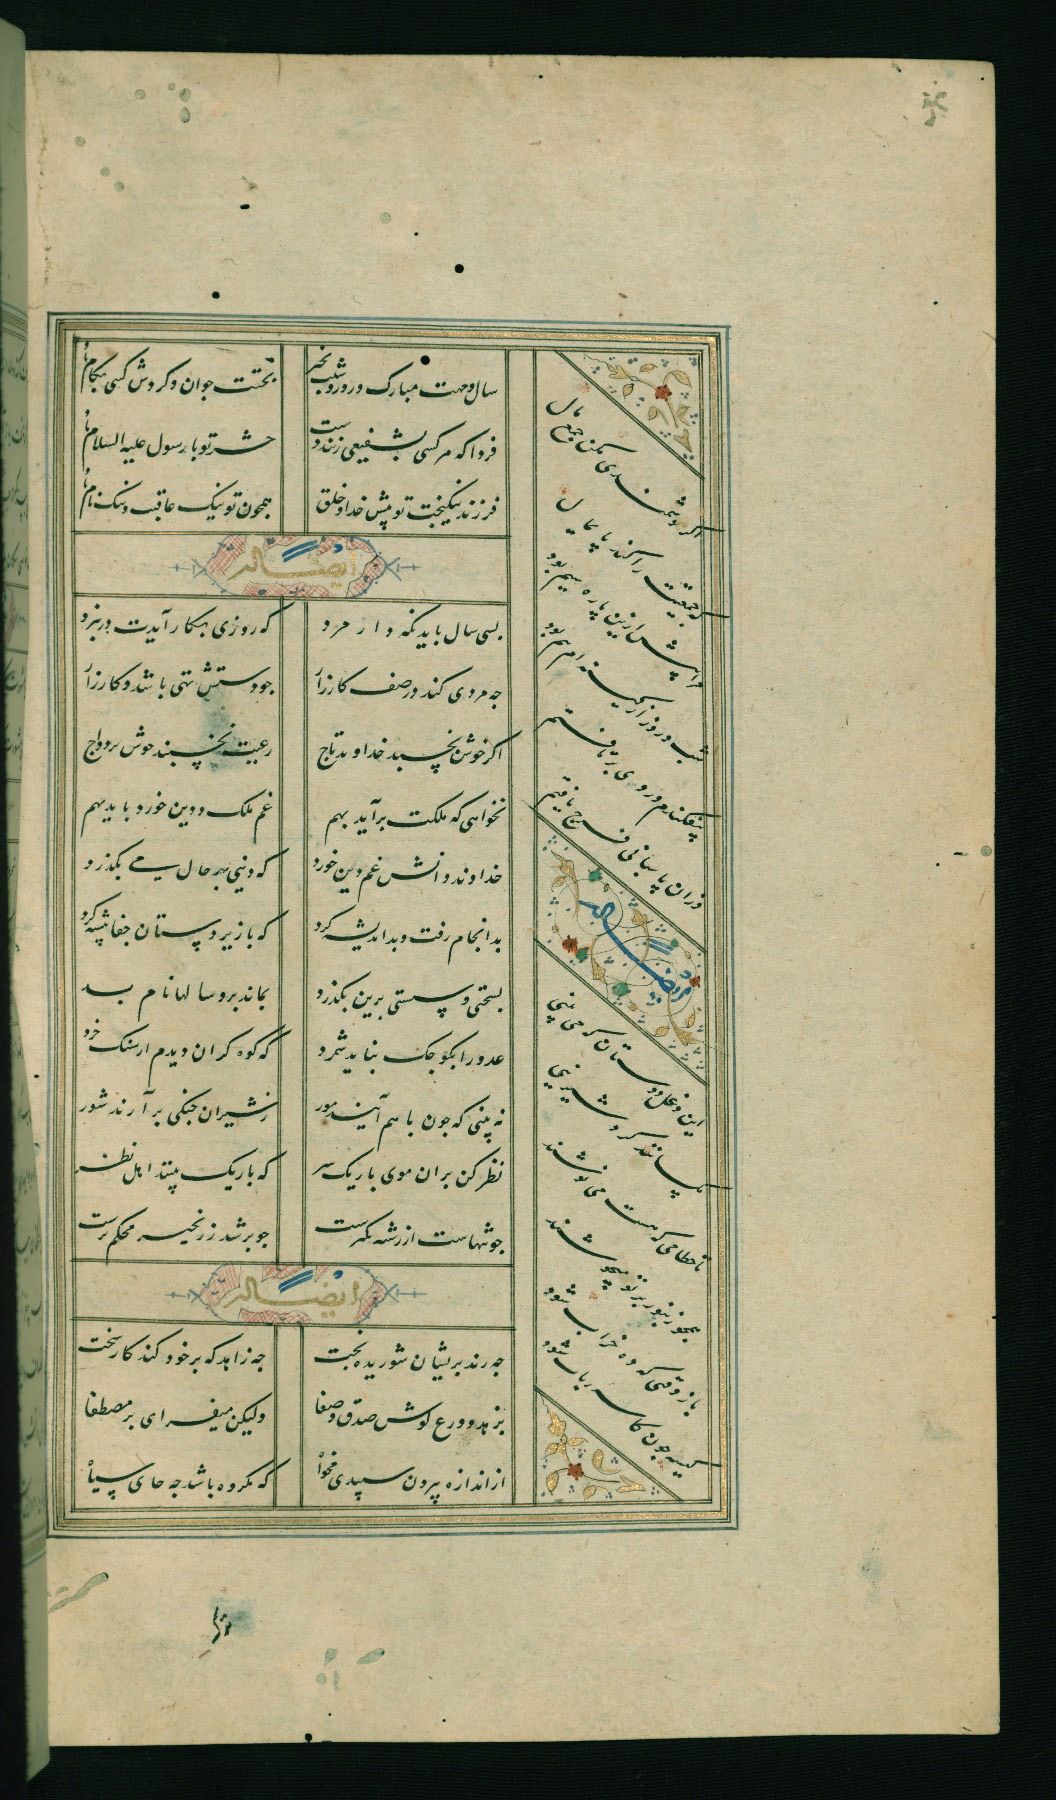 سال و مهت مبارک و روز و شبت بخیر
بختت جوان و گردش گیتی بکام باد
فردا که هر کسی بشفیعی زنند دست
حشر تو با رسول علیه السلام باد
فرزند نیکبخت تو پیش خدا و خلق
همچون تو نیک عاقبت و نیک نام باد
ایضاً له
بسی سال باید نگه دار مرد
که روزی بکار آیدت در نبرد
چه مردی کند در صف کارزار
چو دستش تهی باشد و کار زار
اگر خوش بخسبد خداوند تاج
رعیت نخسبند خوش بر دواج
نخواهی که ملکت برآید بهم
غم ملک و دین خورد باید بهم
خداوند دانش غم دین خورد
که دنیی بهر حال می بگذرد
بد انجام رفت و بد اندیشه کرد
که با زیردستان جفا پیشه کرد
بسختی و سستی برین بگذرد
بماند برو سالها نام بد
عدو را بکوچک نباید شمرد
که کوه گران دیدم از سنگ خرد
نه بینی که چون با هم آیند مور
ز شیران جنگی برآرند شور
نظر کن بران موی باریک سر
که باریک بینند اهل نظر
چو تنهاست از رشته کمترست
چو پر شد ز زنجیر محکم‌ترست
ایضاً له
چه رند پریشان شوریده بخت
چه زاهد که بر خود کند کار سخت
بزهد و ورع کوش و صدق و صفا
ولیکن میفزای بر مصطفا
از اندازه بیرون سپیدی مخواه
که مکروه باشد چه جای سیاه
اگر هوشمندی مکن جمع مال
که جمعیتت را کند پایمال
مرا پیش ازین پاره سیم بود
شب و روز از کیسه‌ام بیم بود
بیفکندم و روی برتافتم
وزان پاسبانی فرج یافتم
و ایضاً له
این دغل دوستان که می بینی
مگسانند گرد شیرینی
تا حطامی که هست می نوشند
همچو زنبور بر تو می جوشند
باز وقتی که ده خراب شود
کیسه چون کاسه رباب شود